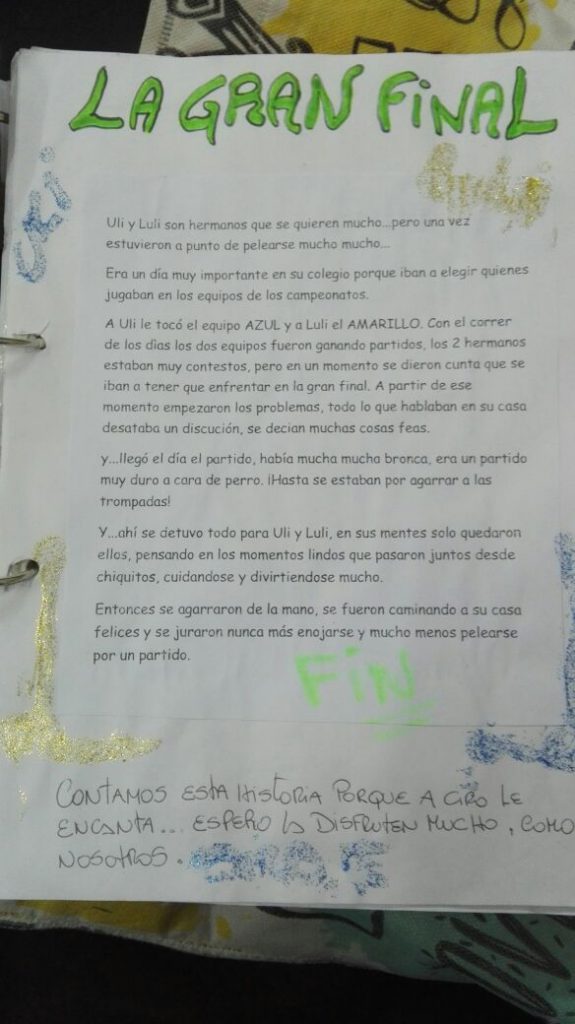 LA GRAN FINAL
Uli y Luli son hermanos que se quieren mucho...pero una vez
estuvieron a punto de pelearse mucho mucho...
Era un día muy importante en su colegio porque iban a elegir quienes
jugaban en los equipos de los campeonatos.
A Uli le tocó el equipo AZUL y a Luli el AMARILLO. Con el correr
de los dias los dos equipos fueron ganando partidos, los 2 hermanos
estaban muy contestos, pero en un momento se dieron cunta que se
iban a tener que enfrentar en la gran final. A partir de ese
momento empezaron los problemas, todo lo que hablaban en su casa
desataba un discución, se decian muchas cosas feas.
y...llegó el día el partido, había mucha mucha bronca, era un partido
muy duro a cara de perro. ¡Hasta se estaban por agarrar a las
trompadas!
Y...ahí se detuvo todo para Uli y Luli, en sus mentes solo quedaron
ellos, pensando en los momentos lindos que pasaron juntos desde
chiquitos, cuidandose y divirtiendose mucho.
Entonces se agarraron de la mano, se fueron caminando a su casa
felices y se juraron nunca más enojarse y mucho menos pelearse
por un partido.
FiN
CONTAMOS ESTA HISTORIA PORQUE A CIRO LE
ENCANTA... ESPERO LA DISFRUTEN MUCHO, COMO
NOSOTROS.